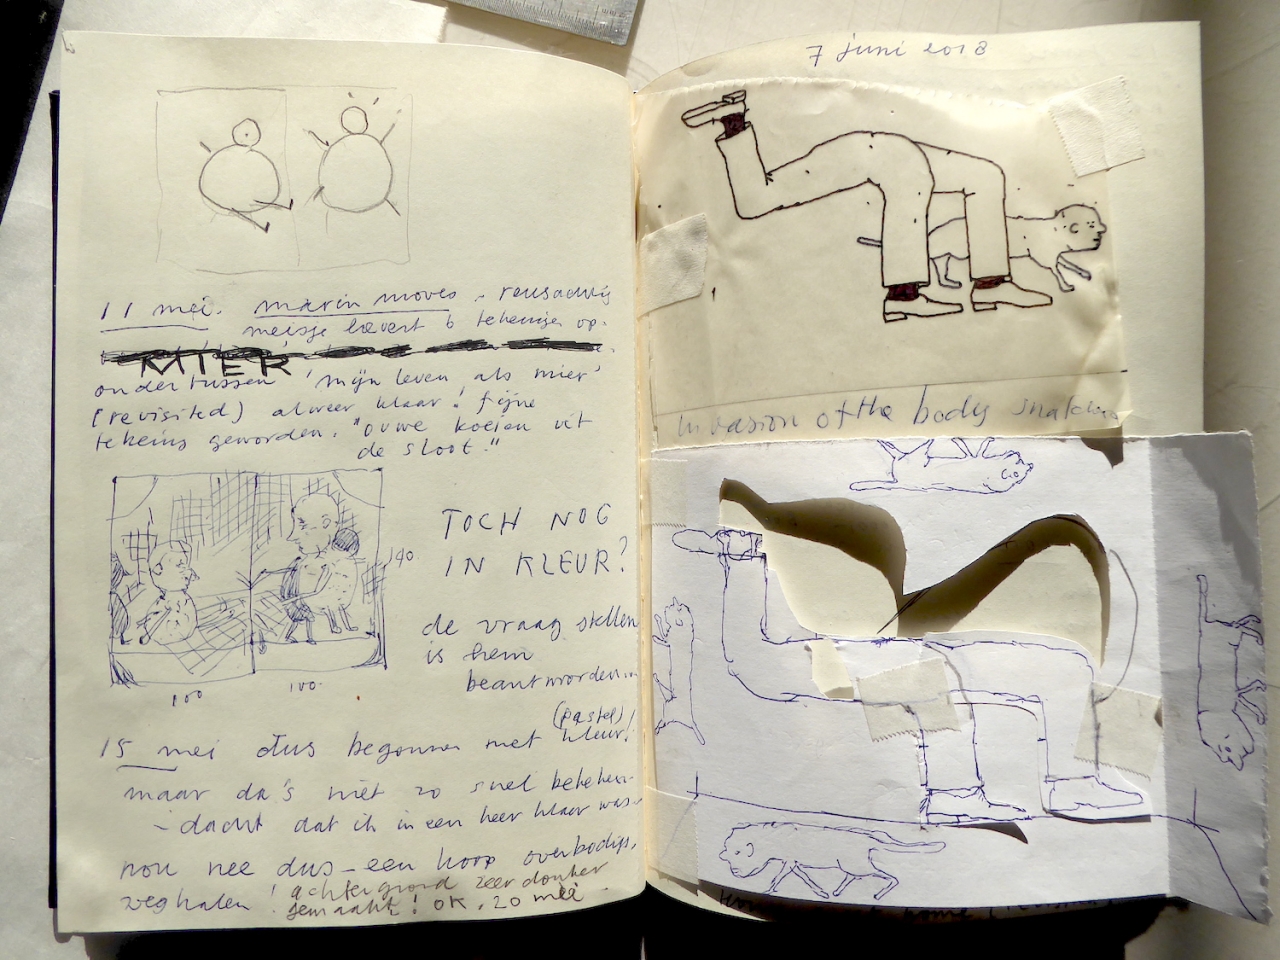 11 mei. marin moves - reusachtig
meisje levert 6 tekeningen op.
MIER
ondertussen 'mijn leven als mier'
(revisited) alweer klaar! fijne
tekening geworden. "ouwe koeien uit
de sloot."
TOCH NOG
IN KLEUR?
140
de vraag stellen
is hem
beantwoorden
100 100
(pastel)
15 mei dus begonnen met kleur!
maar da's niet zo snel
- dacht dat ik in een keer klaar was
nou nee dus - een hoop overbodigs
weghalen! achtergrond zeer donker
gemaakt! OK. 20 mei
7 juni 2018
Invasion of the body snatchers
home